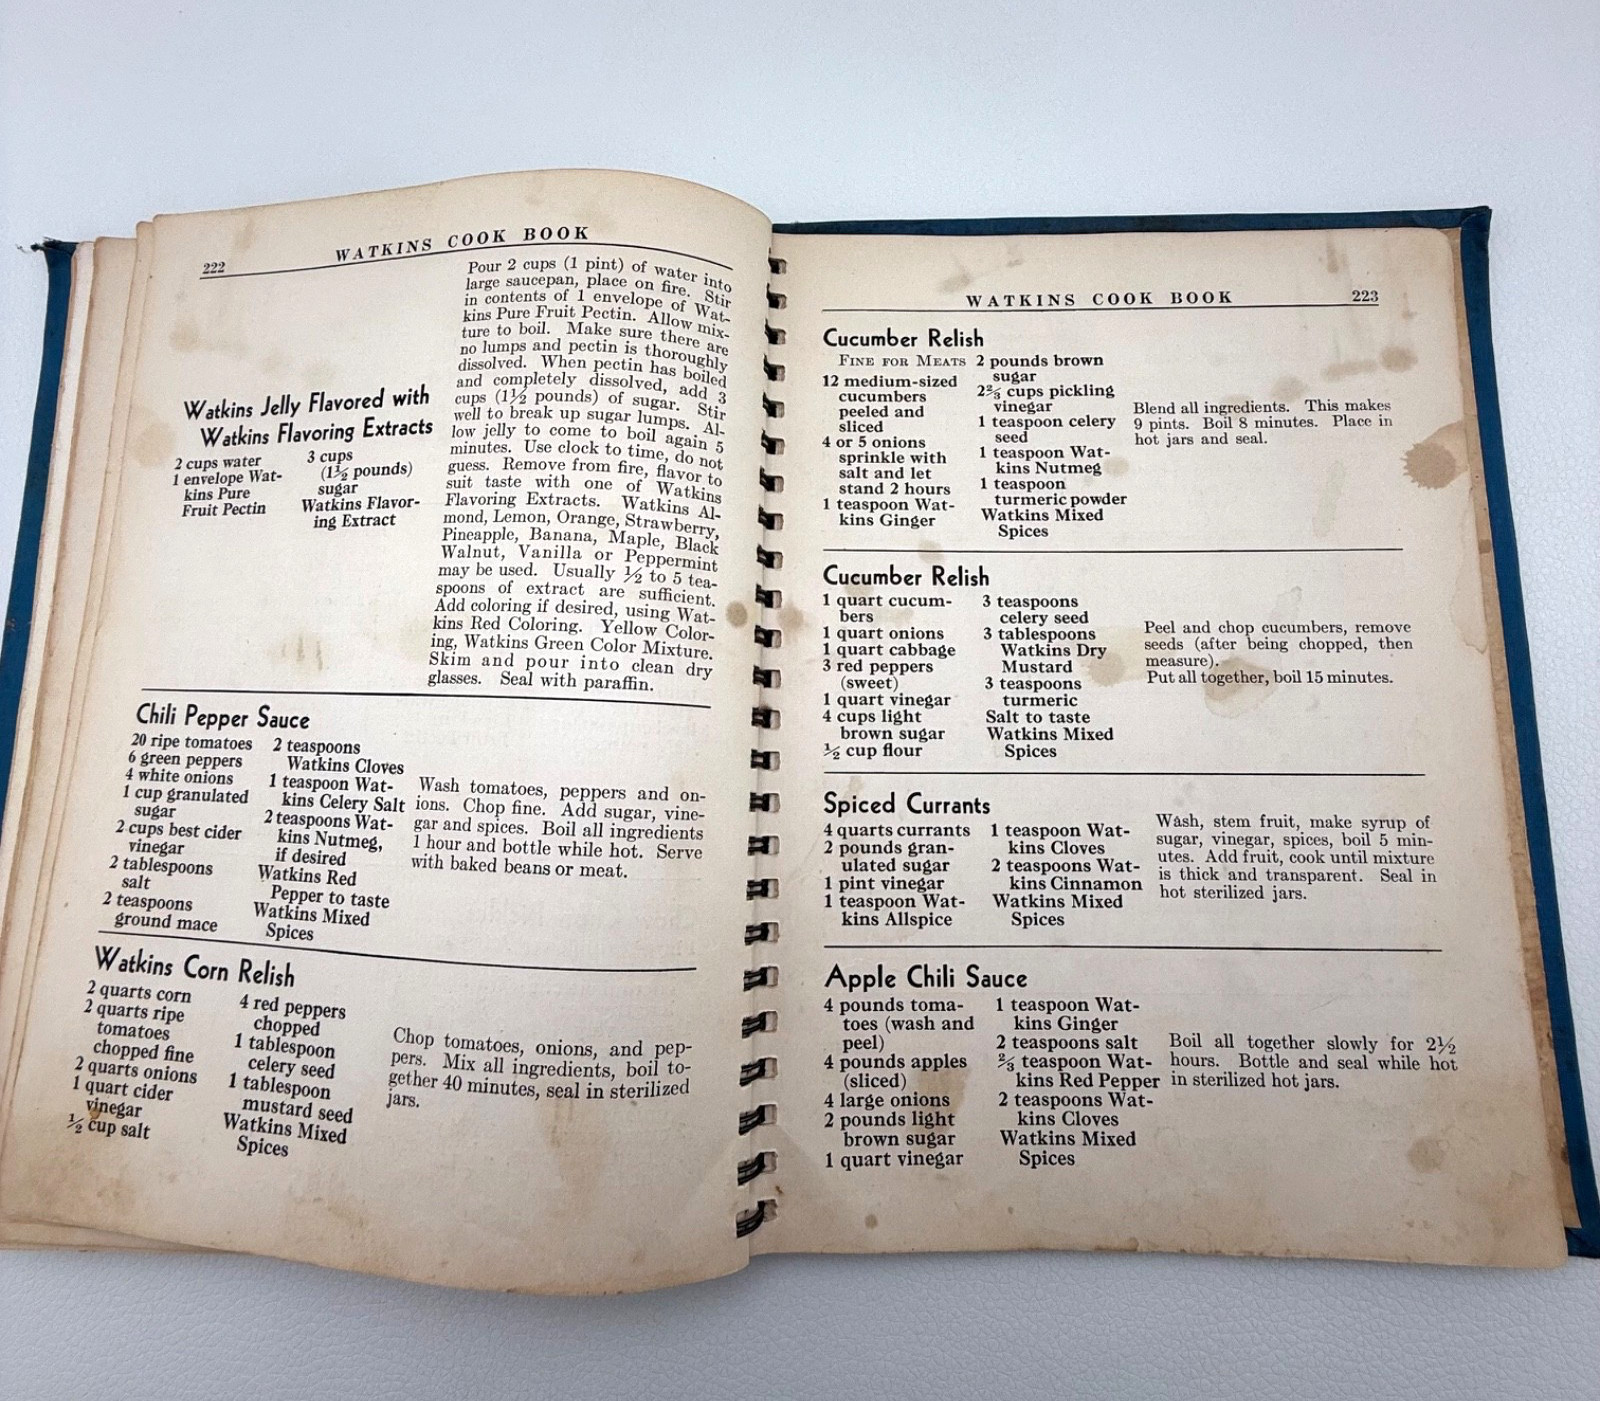 222
WATKINS COOK BOOK
Watkins Jelly Flavored with
Watkins Flavoring Extracts
2 cups water
1 envelope Wat-
kins Pure
Fruit Pectin
3 cups
(1½ pounds)
sugar
Watkins Flavor-
ing Extract
Pour 2 cups (1 pint) of water into
large saucepan, place on fire. Stir
in contents of 1 envelope of Wat-
kins Pure Fruit Pectin. Allow mix-
ture to boil. Make sure there are
no lumps and pectin is thoroughly
dissolved. When pectin has boiled
and completely dissolved, add 3
cups (1½ pounds) of sugar. Stir
well to break up sugar lumps. Al-
low jelly to come to boil again 5
minutes. Use clock to time, do not
guess. Remove from fire, flavor to
suit taste with one of Watkins
Flavoring Extracts. Watkins Al-
mond, Lemon, Orange, Strawberry,
Pineapple, Banana, Maple, Black
Walnut, Vanilla or Peppermint
may be used. Usually ½ to 5 tea-
spoons of extract are sufficient.
Add coloring if desired, using Wat-
kins Red Coloring. Yellow Color-
ing, Watkins Green Color Mixture.
Skim and pour into clean dry
glasses. Seal with paraffin.
Chili Pepper Sauce
20 ripe tomatoes
6 green peppers
4 white onions
1 cup granulated
sugar
2 cups best cider
vinegar
2 tablespoons
salt
2 teaspoons
ground mace
2 teaspoons
Watkins Cloves
1 teaspoon Wat-
kins Celery Salt
2 teaspoons Wat-
kins Nutmeg,
if desired
Watkins Red
Pepper to taste
Watkins Mixed
Spices
Wash tomatoes, peppers and on-
ions. Chop fine. Add sugar, vine-
gar and spices. Boil all ingredients
1 hour and bottle while hot. Serve
with baked beans or meat.
Watkins Corn Relish
2 quarts corn
2 quarts ripe
tomatoes
chopped fine
2 quarts onions
1 quart cider
vinegar
½ cup salt
4 red peppers
chopped
1 tablespoon
celery seed
1 tablespoon
mustard seed
Watkins Mixed
Spices
Chop tomatoes, onions, and pep-
pers. Mix all ingredients, boil to-
gether 40 minutes, seal in sterilized
jars.
WATKINS COOK BOOK
223
Cucumber Relish
FINE FOR MEATS
12 medium-sized
cucumbers
peeled and
sliced
4 or 5 onions
sprinkle with
salt and let
stand 2 hours
1 teaspoon Wat-
kins Ginger
2 pounds brown
sugar
2⅔ cups pickling
vinegar
1 teaspoon celery
seed
1 teaspoon Wat-
kins Nutmeg
1 teaspoon
turmeric powder
Watkins Mixed
Spices
Blend all ingredients. This makes
9 pints. Boil 8 minutes. Place in
hot jars and seal.
Cucumber Relish
1 quart cucum-
bers
1 quart onions
1 quart cabbage
3 red peppers
(sweet)
1 quart vinegar
4 cups light
brown sugar
½ cup flour
3 teaspoons
celery seed
3 tablespoons
Watkins Dry
Mustard
3 teaspoons
turmeric
Salt to taste
Watkins Mixed
Spices
Peel and chop cucumbers, remove
seeds (after being chopped, then
measure).
Put all together, boil 15 minutes.
Spiced Currants
4 quarts currants
2 pounds gran-
ulated sugar
1 pint vinegar
1 teaspoon Wat-
kins Allspice
1 teaspoon Wat-
kins Cloves
2 teaspoons Wat-
kins Cinnamon
Watkins Mixed
Spices
Wash, stem fruit, make syrup of
sugar, vinegar, spices, boil 5 min-
utes. Add fruit, cook until mixture
is thick and transparent. Seal in
hot sterilized jars.
Apple Chili Sauce
4 pounds toma-
toes (wash and
peel)
4 pounds apples
(sliced)
4 large onions
2 pounds light
brown sugar
1 quart vinegar
1 teaspoon Wat-
kins Ginger
2 teaspoons salt
⅔ teaspoon Wat-
kins Red Pepper
2 teaspoons Wat-
kins Cloves
Watkins Mixed
Spices
Boil all together slowly for 2½
hours. Bottle and seal while hot
in sterilized hot jars.